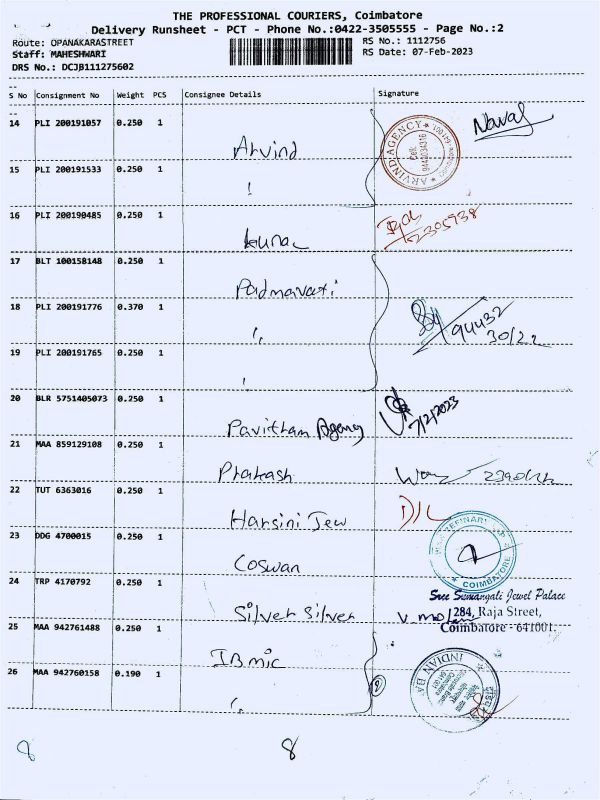 THE PROFESSIONAL COURIERS, Coimbatore
Delivery Runsheet - PCT - Phone No.:0422-3505555 - Page No.:2
Route: OPANAKARASTREET
RS No.: 1112756
Staff: MAHESHWARI
RS Date: 07-Feb-2023
DRS No.: DCJB111275602
S No Consignment No Weight PCS Consignee Details Signature
14 PLI 200191057 0.250 1 Arvind
ARVIND AGENCY
Cell: 9442034316
15 PLI 200191533 0.250 1 "
16 PLI 200190485 0.250 1
2305938
17 BLT 100158148 0.250 1 Padmavati
18 PLI 200191776 0.370 1 "
94432
30/22
19 PLI 200191765 0.250 1 "
20 BLR 5751405073 0.250 1 Pavitham Agency 7/2/2023
21 MAA 859129108 0.250 1 Prakash
22 TUT 6363016 0.250 1 Harsini Jew
23 DDG 4700015 0.250 1 Coswan
COIMBATORE
24 TRP 4170792 0.250 1 Silver Silver
Sree Sumangali Jewel Palace
284, Raja Street,
Coimbatore - 641001.
25 MAA 942761488 0.250 1 IB mic
26 MAA 942760158 0.190 1 "
2
INDIAN BA
8 8